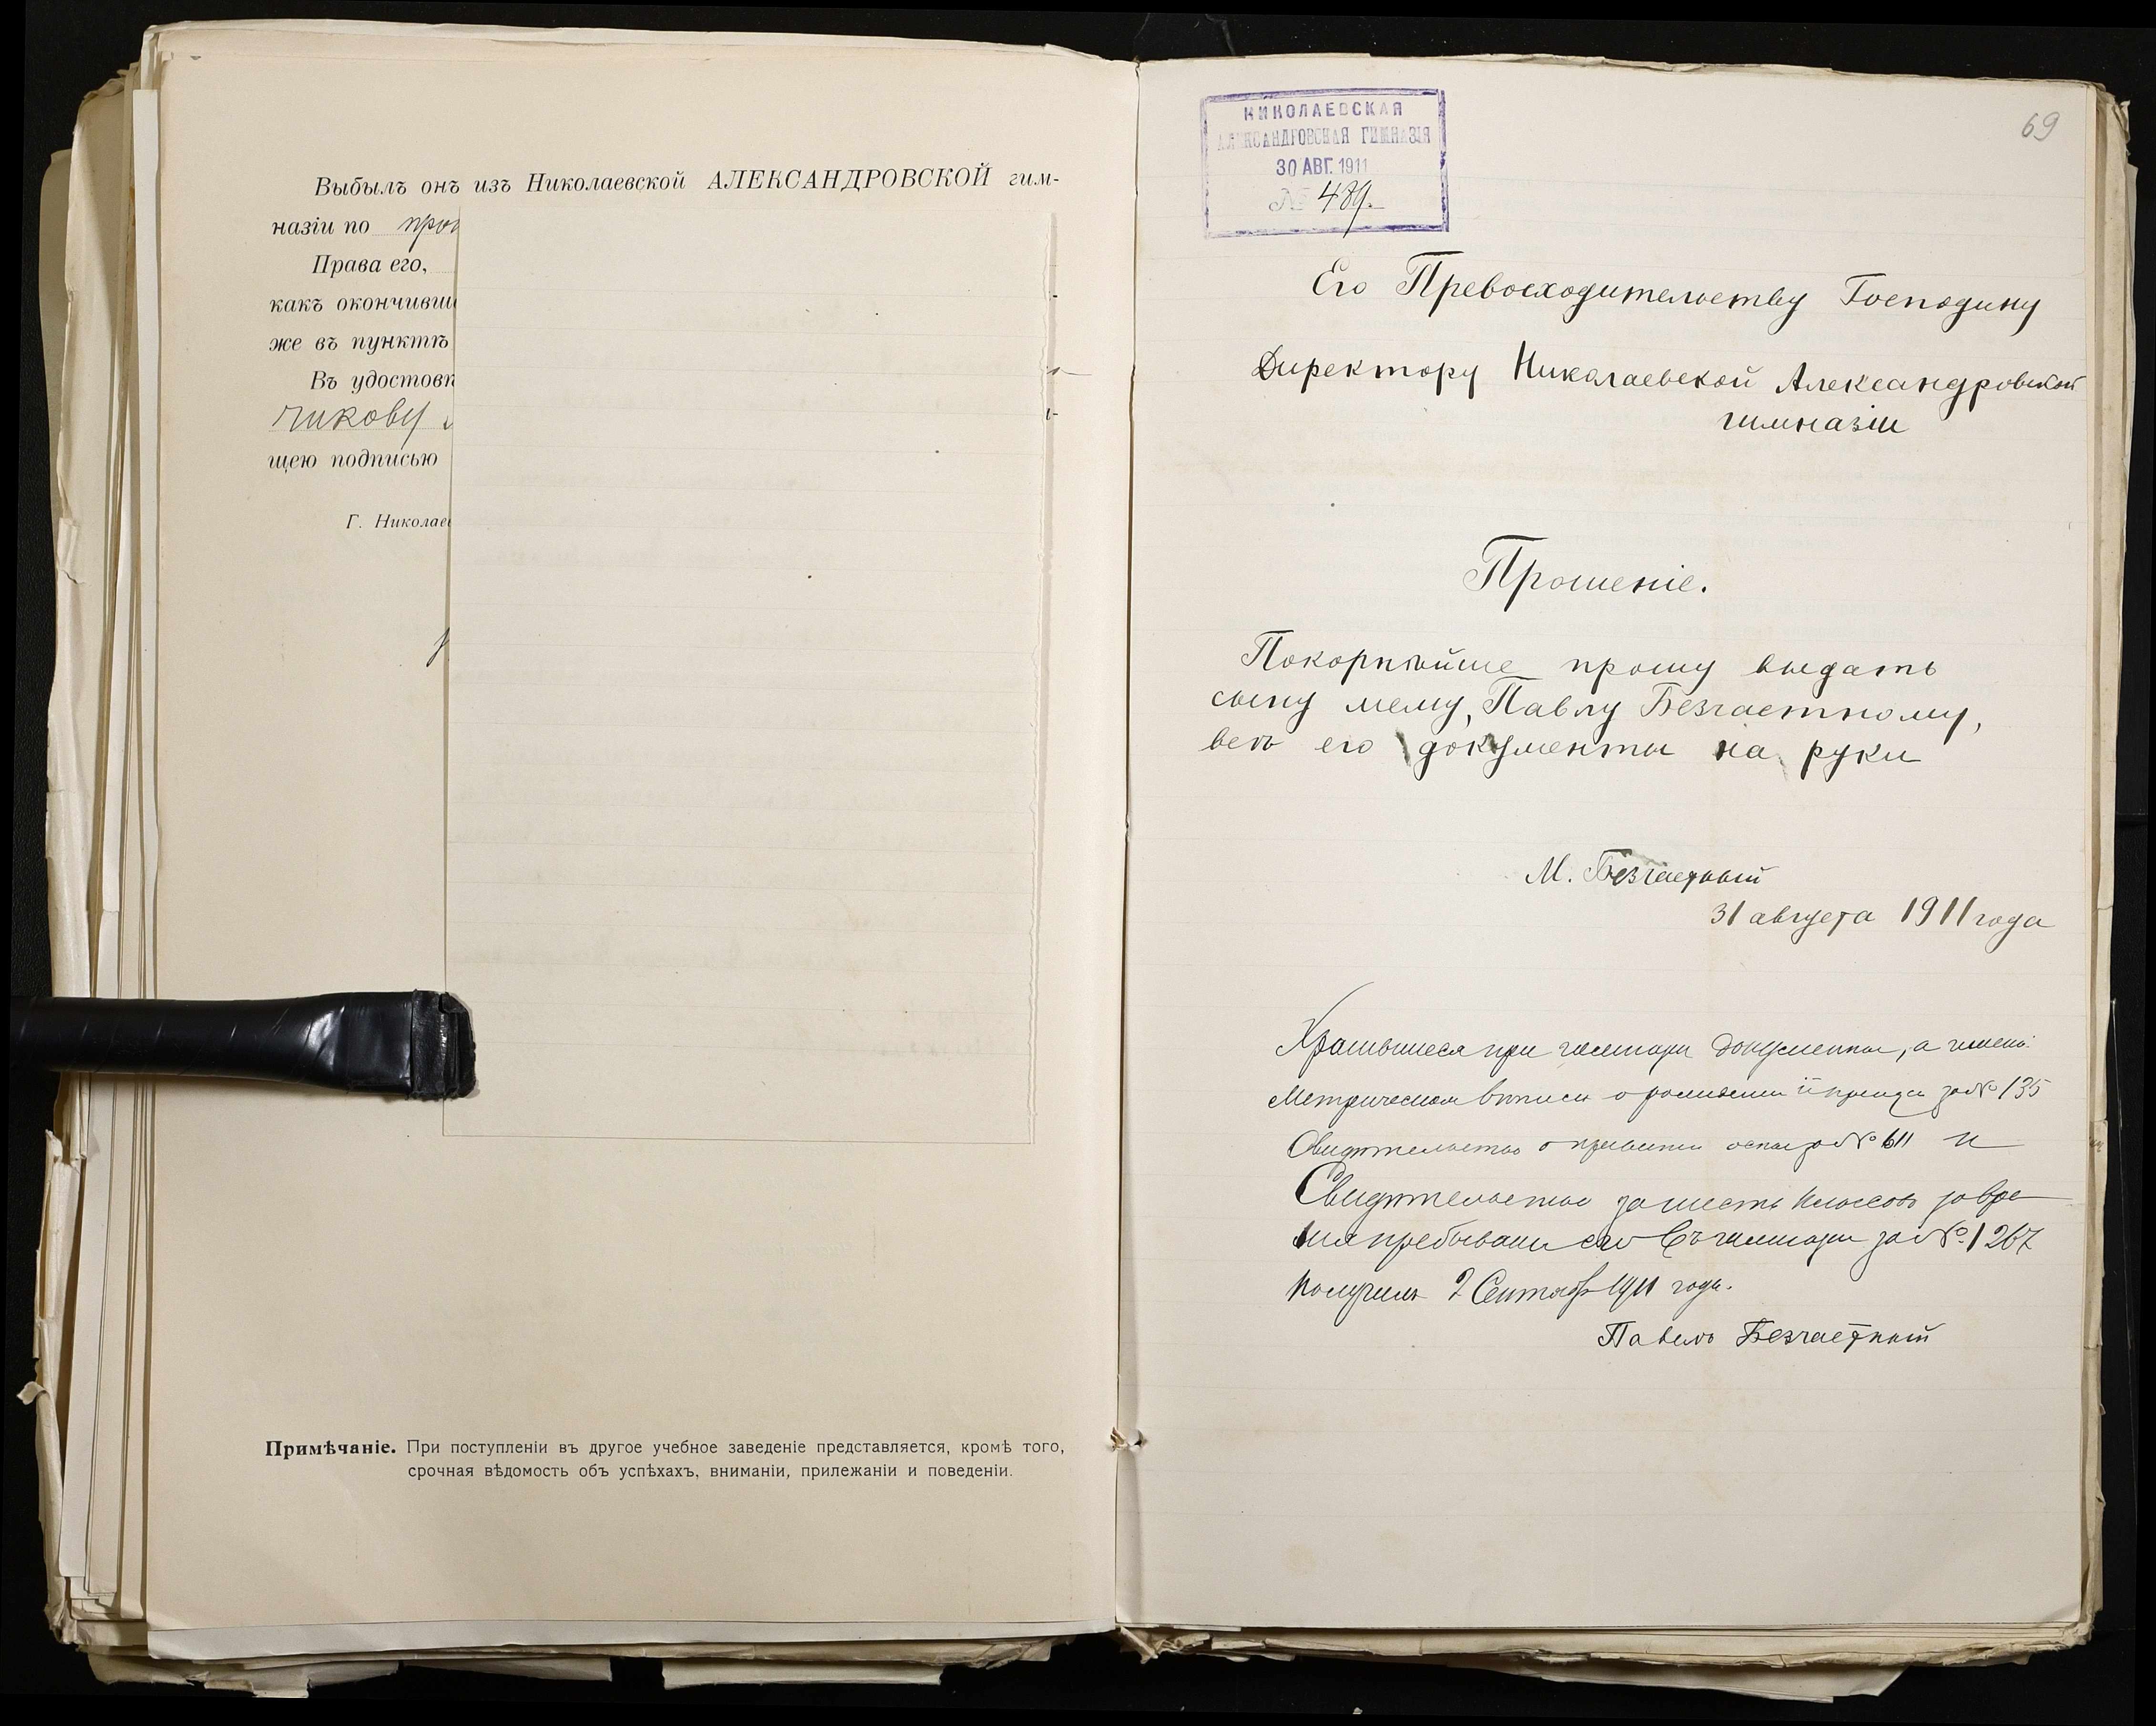 Выбылъ онъ изъ Николаевской АЛЕКСАНДРОВСКОЙ гим-
назіи по
Права его,
какъ окончивш
же въ пунктѣ
Въ удостовѣ
чикову
щею подписью
Г. Николае
Примѣчаніе. При поступленіи въ другое учебное заведеніе представляется, кромѣ того,
срочная вѣдомость объ успѣхахъ, вниманіи, прилежаніи и поведеніи.
69
НИКОЛАЕВСКАЯ
АЛЕКСАНДРОВСКАЯ ГИМНАЗІЯ
30 АВГ. 1911
№ 489.
Его Превосходительству Господину
Директору Николаевской Александровской
гимназіи
Прошеніе.
Покорнѣйше прошу выдать
сыну мему, Павлу Безчастному,
всѣ его документы на руки
М. Безчастный
31 августа 1911 года
Хранившіеся при гимназіи документы, а именно:
Метрическая выпись о рожденіи и крещ. за № 135
Свидѣтельство о привитіи оспы за № 611 и
Свидѣтельство за шесть классовъ за вре
мя пребыванія его въ гимназіи за № 1267
получилъ 2 Сентября 1911 года.
Павелъ Безчастный